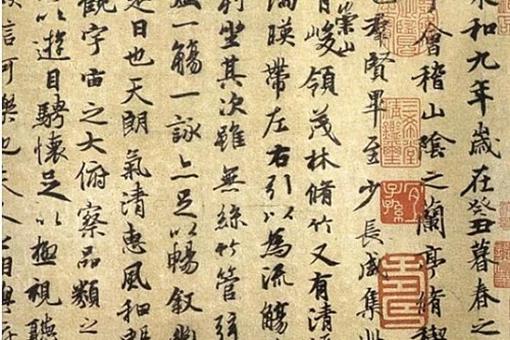 永和九年歲在癸丑暮春之
于會稽山陰之蘭亭脩禊
也羣賢畢至少長咸集此
有崇山峻領茂林脩竹又有清
湍暎帶左右引以為流觴
列坐其次雖無絲竹管弦
盛一觴一詠亦足以暢敘幽
是日也天朗氣清惠風和暢
觀宇宙之大俯察品類之
以遊目騁懷足以極視聽
信可樂也夫人之相與
三希堂精鑑璽
宜子孫